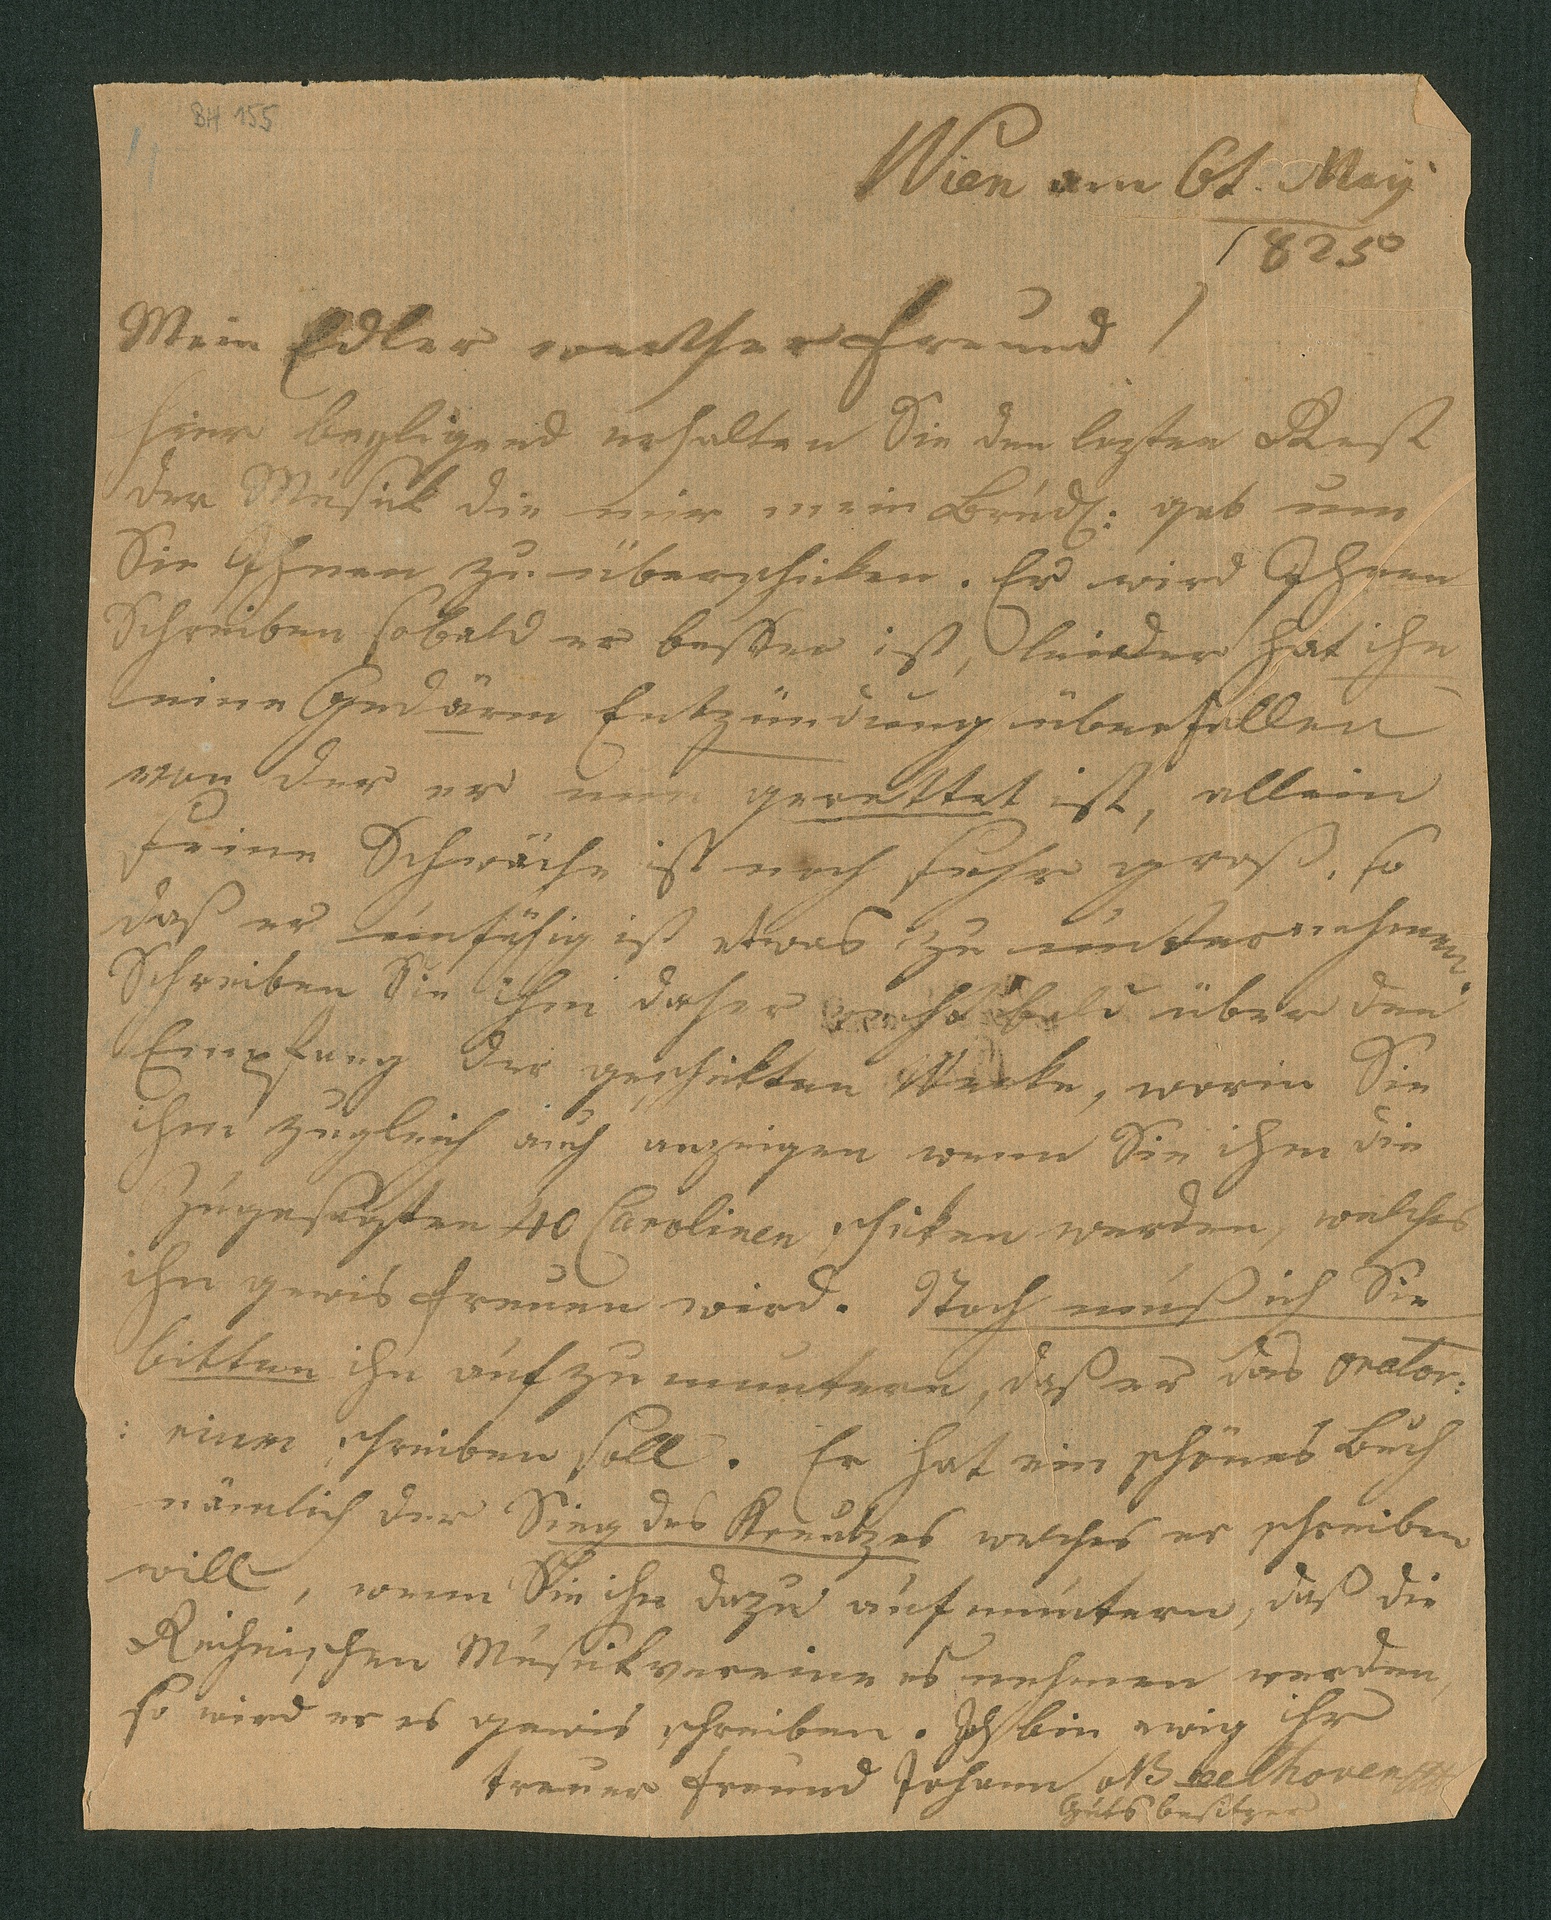 BH 155
Wien am 6t. May
1825
Mein Edler werther Freund!
hier beyligend erhalten Sie den lezten Rest
der Musick die mir mein Brud: gab um
Sie Ihnen zu überschicken. Er wird Ihnen
Schreiben sobald er besser ist, leider hat ihn
eine Gedärm Entzündung überfallen
von der er nun gerettet ist, allein
seine Schwäche ist noch sehr groß, so
daß er unfähig ist etwas zu unternehmen.
Schreiben Sie ihm daher recht bald über den
Empfang der geschikten Werke, worin Sie
ihm zugleich auch anzeigen wenn Sie ihm die
zugesagten 40 Carolinen schicken werden, welches
ihn gewis freuen wird. Noch muß ich Sie
bitten ihn aufzumuntern, daß er das orator:
: schreiben soll. Er hat ein schönes Buch
nämlich der Sieg des Kreutzes welches er schreiben
will, wenn Sie ihn dazu aufmuntern, daß die
Reihnischen Musickvereine es nehmen werden,
so wird er es gewis schreiben. Ich bin ewig ihr
treuer Freund Johann v Beethoven
Gutsbesitzer